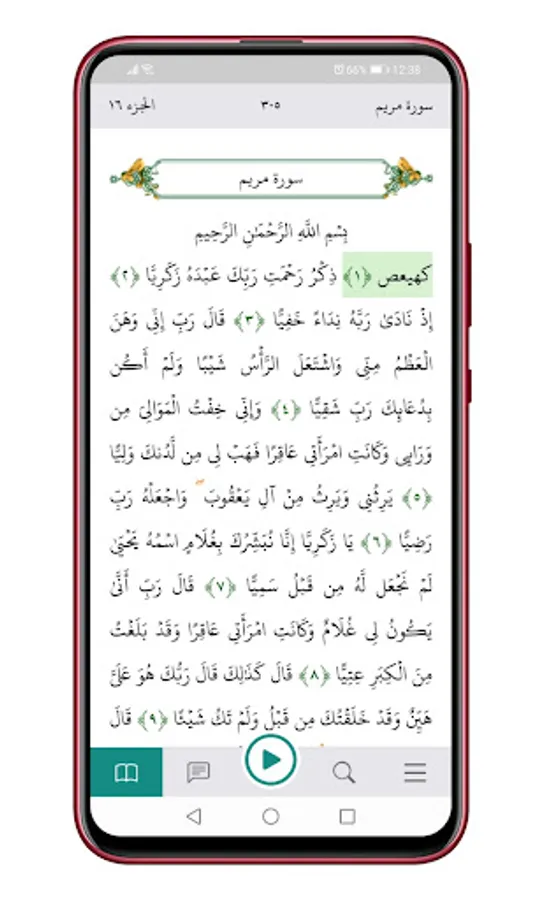 66% 12:38
سورة مريم ٣٠٥ الجزء ١٦
سورة مريم
بِسْمِ اللَّهِ الرَّحْمَٰنِ الرَّحِيمِ
كهيعص ﴿١﴾ ذِكْرُ رَحْمَتِ رَبِّكَ عَبْدَهُ زَكَرِيَّا ﴿٢﴾
إِذْ نَادَىٰ رَبَّهُ نِدَاءً خَفِيًّا ﴿٣﴾ قَالَ رَبِّ إِنِّي وَهَنَ
الْعَظْمُ مِنِّي وَاشْتَعَلَ الرَّأْسُ شَيْبًا وَلَمْ أَكُن
بِدُعَائِكَ رَبِّ شَقِيًّا ﴿٤﴾ وَإِنِّي خِفْتُ الْمَوَالِيَ مِن
وَرَائِي وَكَانَتِ امْرَأَتِي عَاقِرًا فَهَبْ لِي مِن لَّدُنكَ وَلِيًّا
﴿٥﴾ يَرِثُنِي وَيَرِثُ مِنْ آلِ يَعْقُوبَ ۖ وَاجْعَلْهُ رَبِّ
رَضِيًّا ﴿٦﴾ يَا زَكَرِيَّا إِنَّا نُبَشِّرُكَ بِغُلَامٍ اسْمُهُ يَحْيَىٰ
لَمْ نَجْعَل لَّهُ مِن قَبْلُ سَمِيًّا ﴿٧﴾ قَالَ رَبِّ أَنَّىٰ
يَكُونُ لِي غُلَامٌ وَكَانَتِ امْرَأَتِي عَاقِرًا وَقَدْ بَلَغْتُ
مِنَ الْكِبَرِ عِتِيًّا ﴿٨﴾ قَالَ كَذَٰلِكَ قَالَ رَبُّكَ هُوَ عَلَيَّ
هَيِّنٌ وَقَدْ خَلَقْتُكَ مِن قَبْلُ وَلَمْ تَكُ شَيْئًا ﴿٩﴾ قَالَ